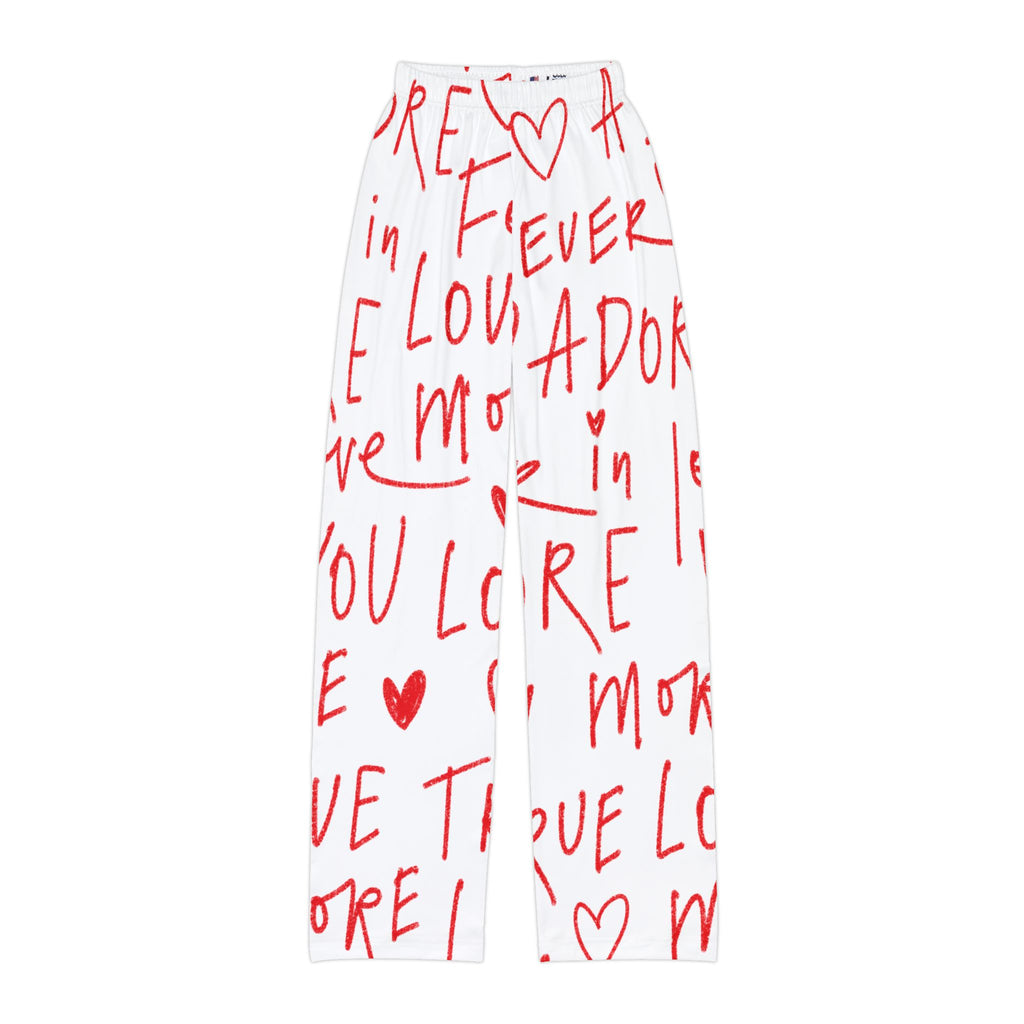 ORE ♡ A
in F EVER
LOV ADOR
E
ve Mo in
YOU LO RE
E ♥ MOR
VE TR RUE LO
ORE I ♡ M